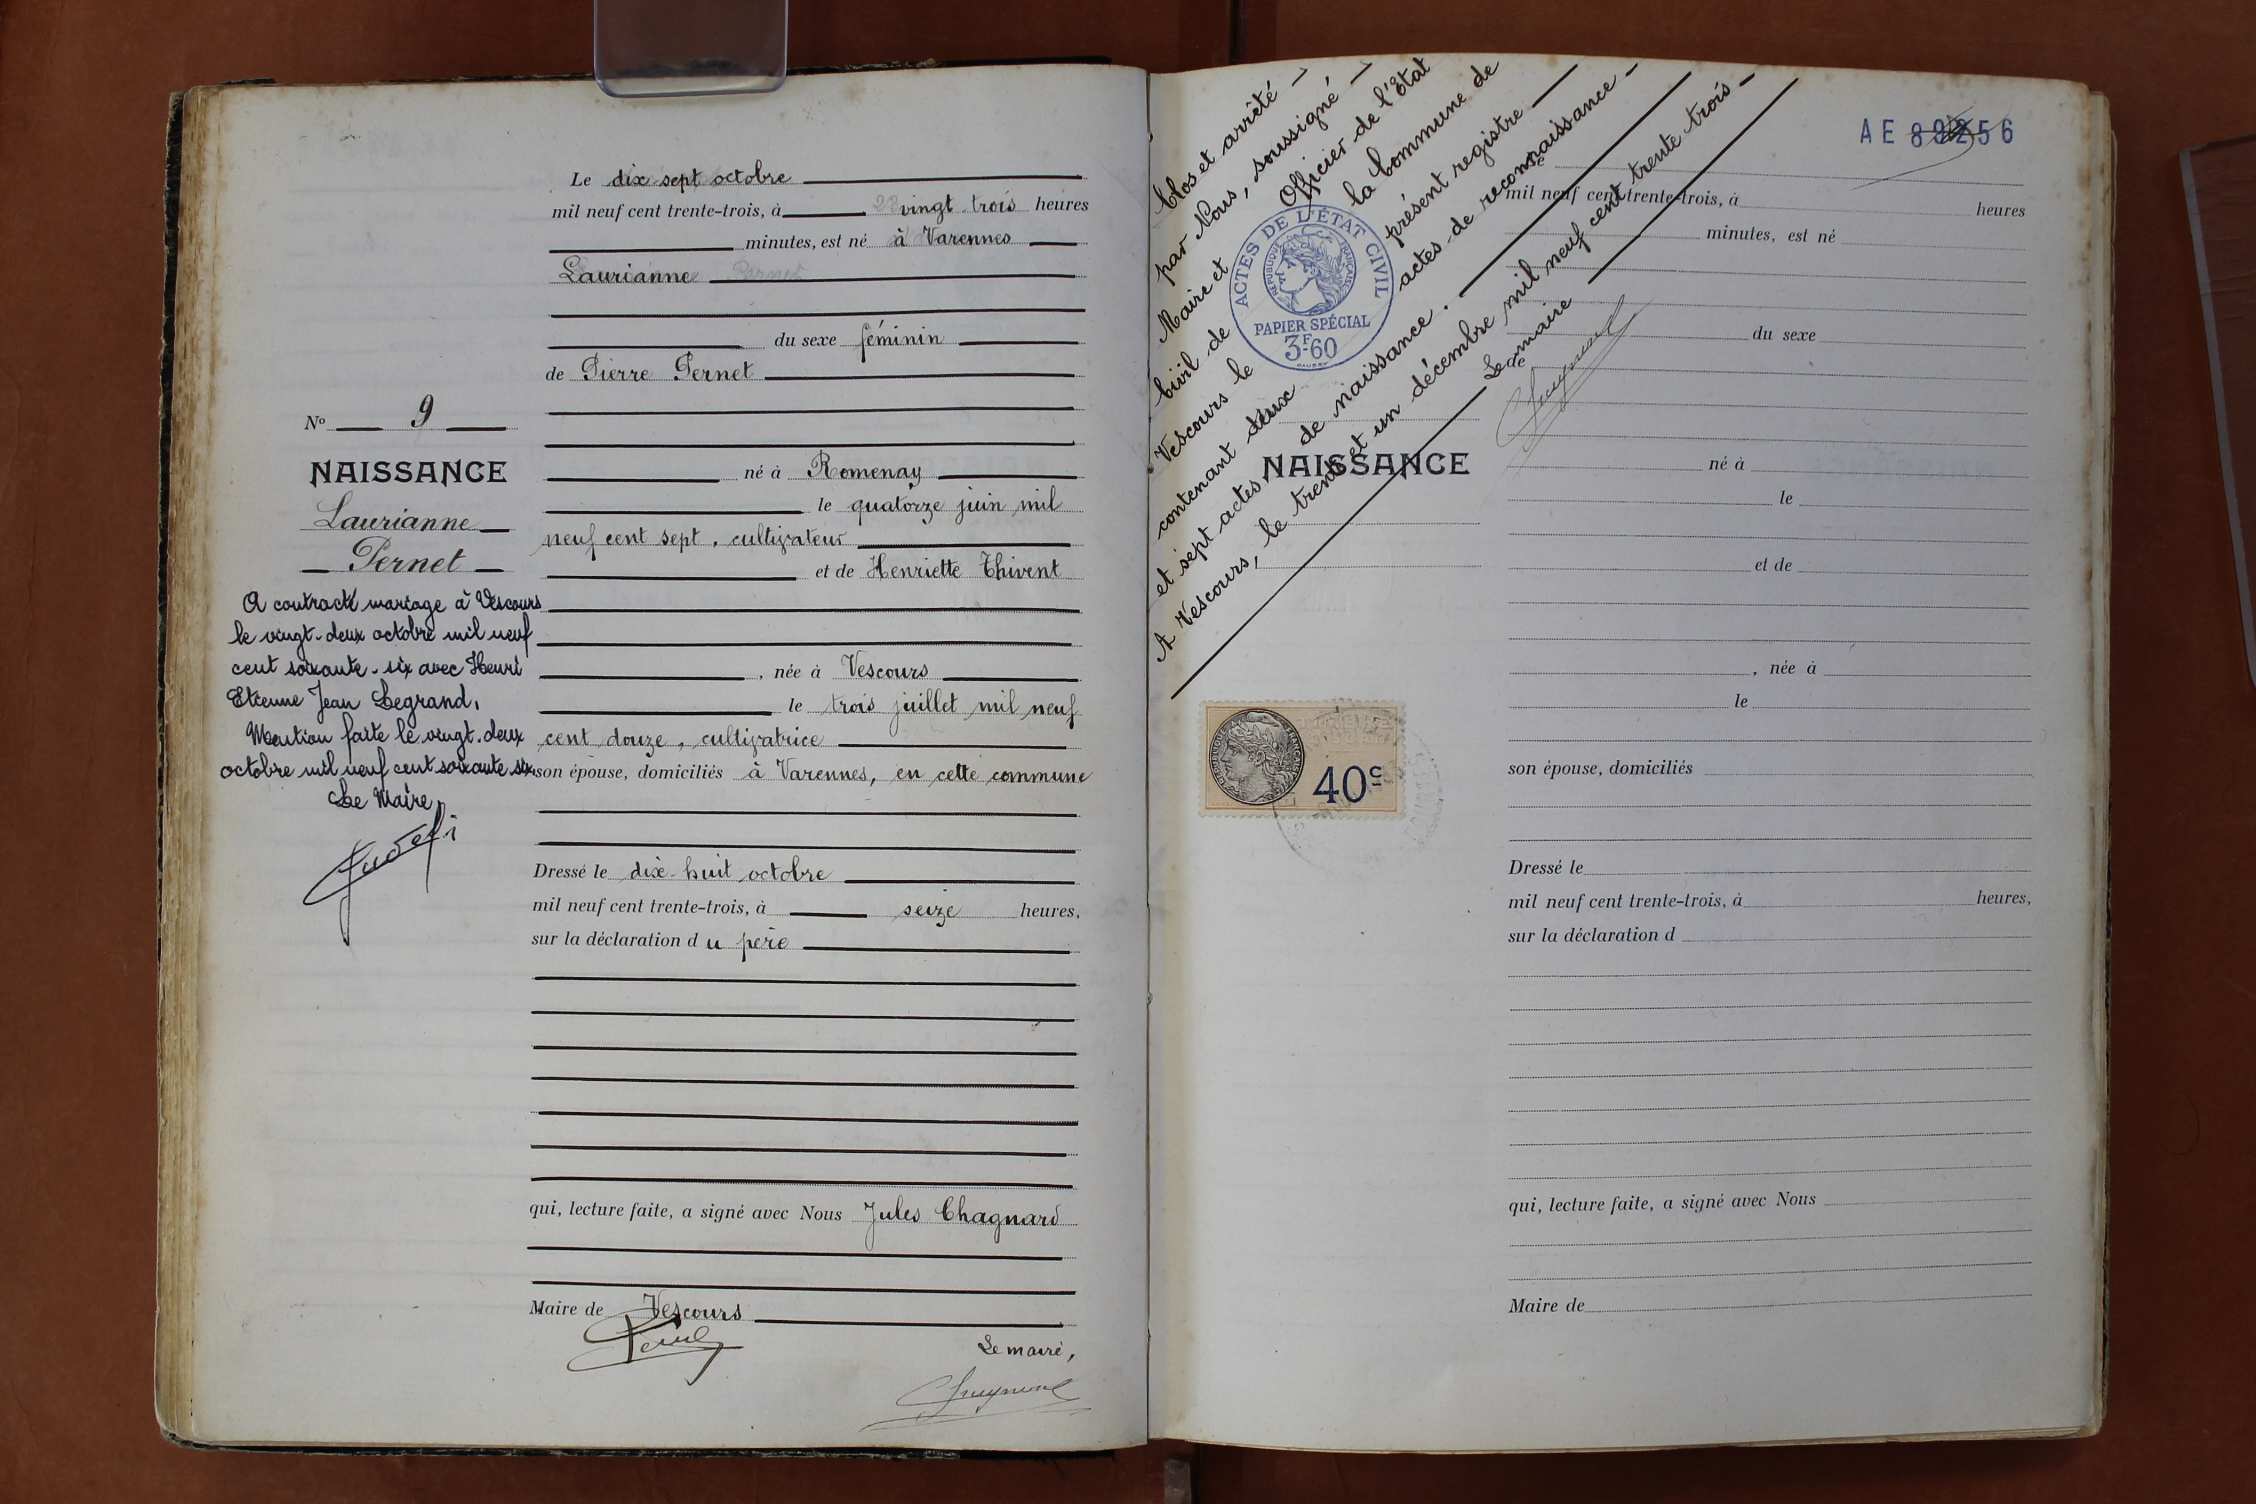 Le dix sept octobre
mil neuf cent trente-trois, à vingt-trois heures
minutes, est né à Varennes
Laurianne
du sexe féminin
de Pierre Pernet
né à Romenay
le quatorze juin mil
neuf cent sept, cultivateur
et de Henriette Thivent
, née à Vescours
le trois juillet mil neuf
cent douze, cultivatrice
son épouse, domiciliés à Varennes, en cette commune
Dressé le dix-huit octobre
mil neuf cent trente-trois, à seize heures,
sur la déclaration du père
qui, lecture faite, a signé avec Nous Jules Chagnard
Maire de Vescours
Le maire,
No 9
NAISSANCE
Laurianne
Pernet
A contracté mariage à Vescours
le vingt-deux octobre mil neuf
cent soixante-six avec Henri
Etienne Jean Legrand,
Mention faite le vingt-deux
octobre mil neuf cent soixante six
Le Maire
Clos et arrêté
par Nous, soussigné
Maire et Officier de l'Etat
Civil de la Commune de
Vescours le présent registre
contenant deux actes de reconnaissance
et sept actes de naissance.
A Vescours, le trente et un décembre mil neuf cent trente trois
Le maire
ACTES DE L'ÉTAT CIVIL
RÉPUBLIQUE FRANÇAISE
PAPIER SPÉCIAL
3F-60
AE 8 56
NAISSANCE
40c
mil neuf cent trente-trois, à
heures
minutes, est né
du sexe
de
né à
le
et de
, née à
le
son épouse, domiciliés
Dressé le
mil neuf cent trente-trois, à heures,
sur la déclaration d
qui, lecture faite, a signé avec Nous
Maire de